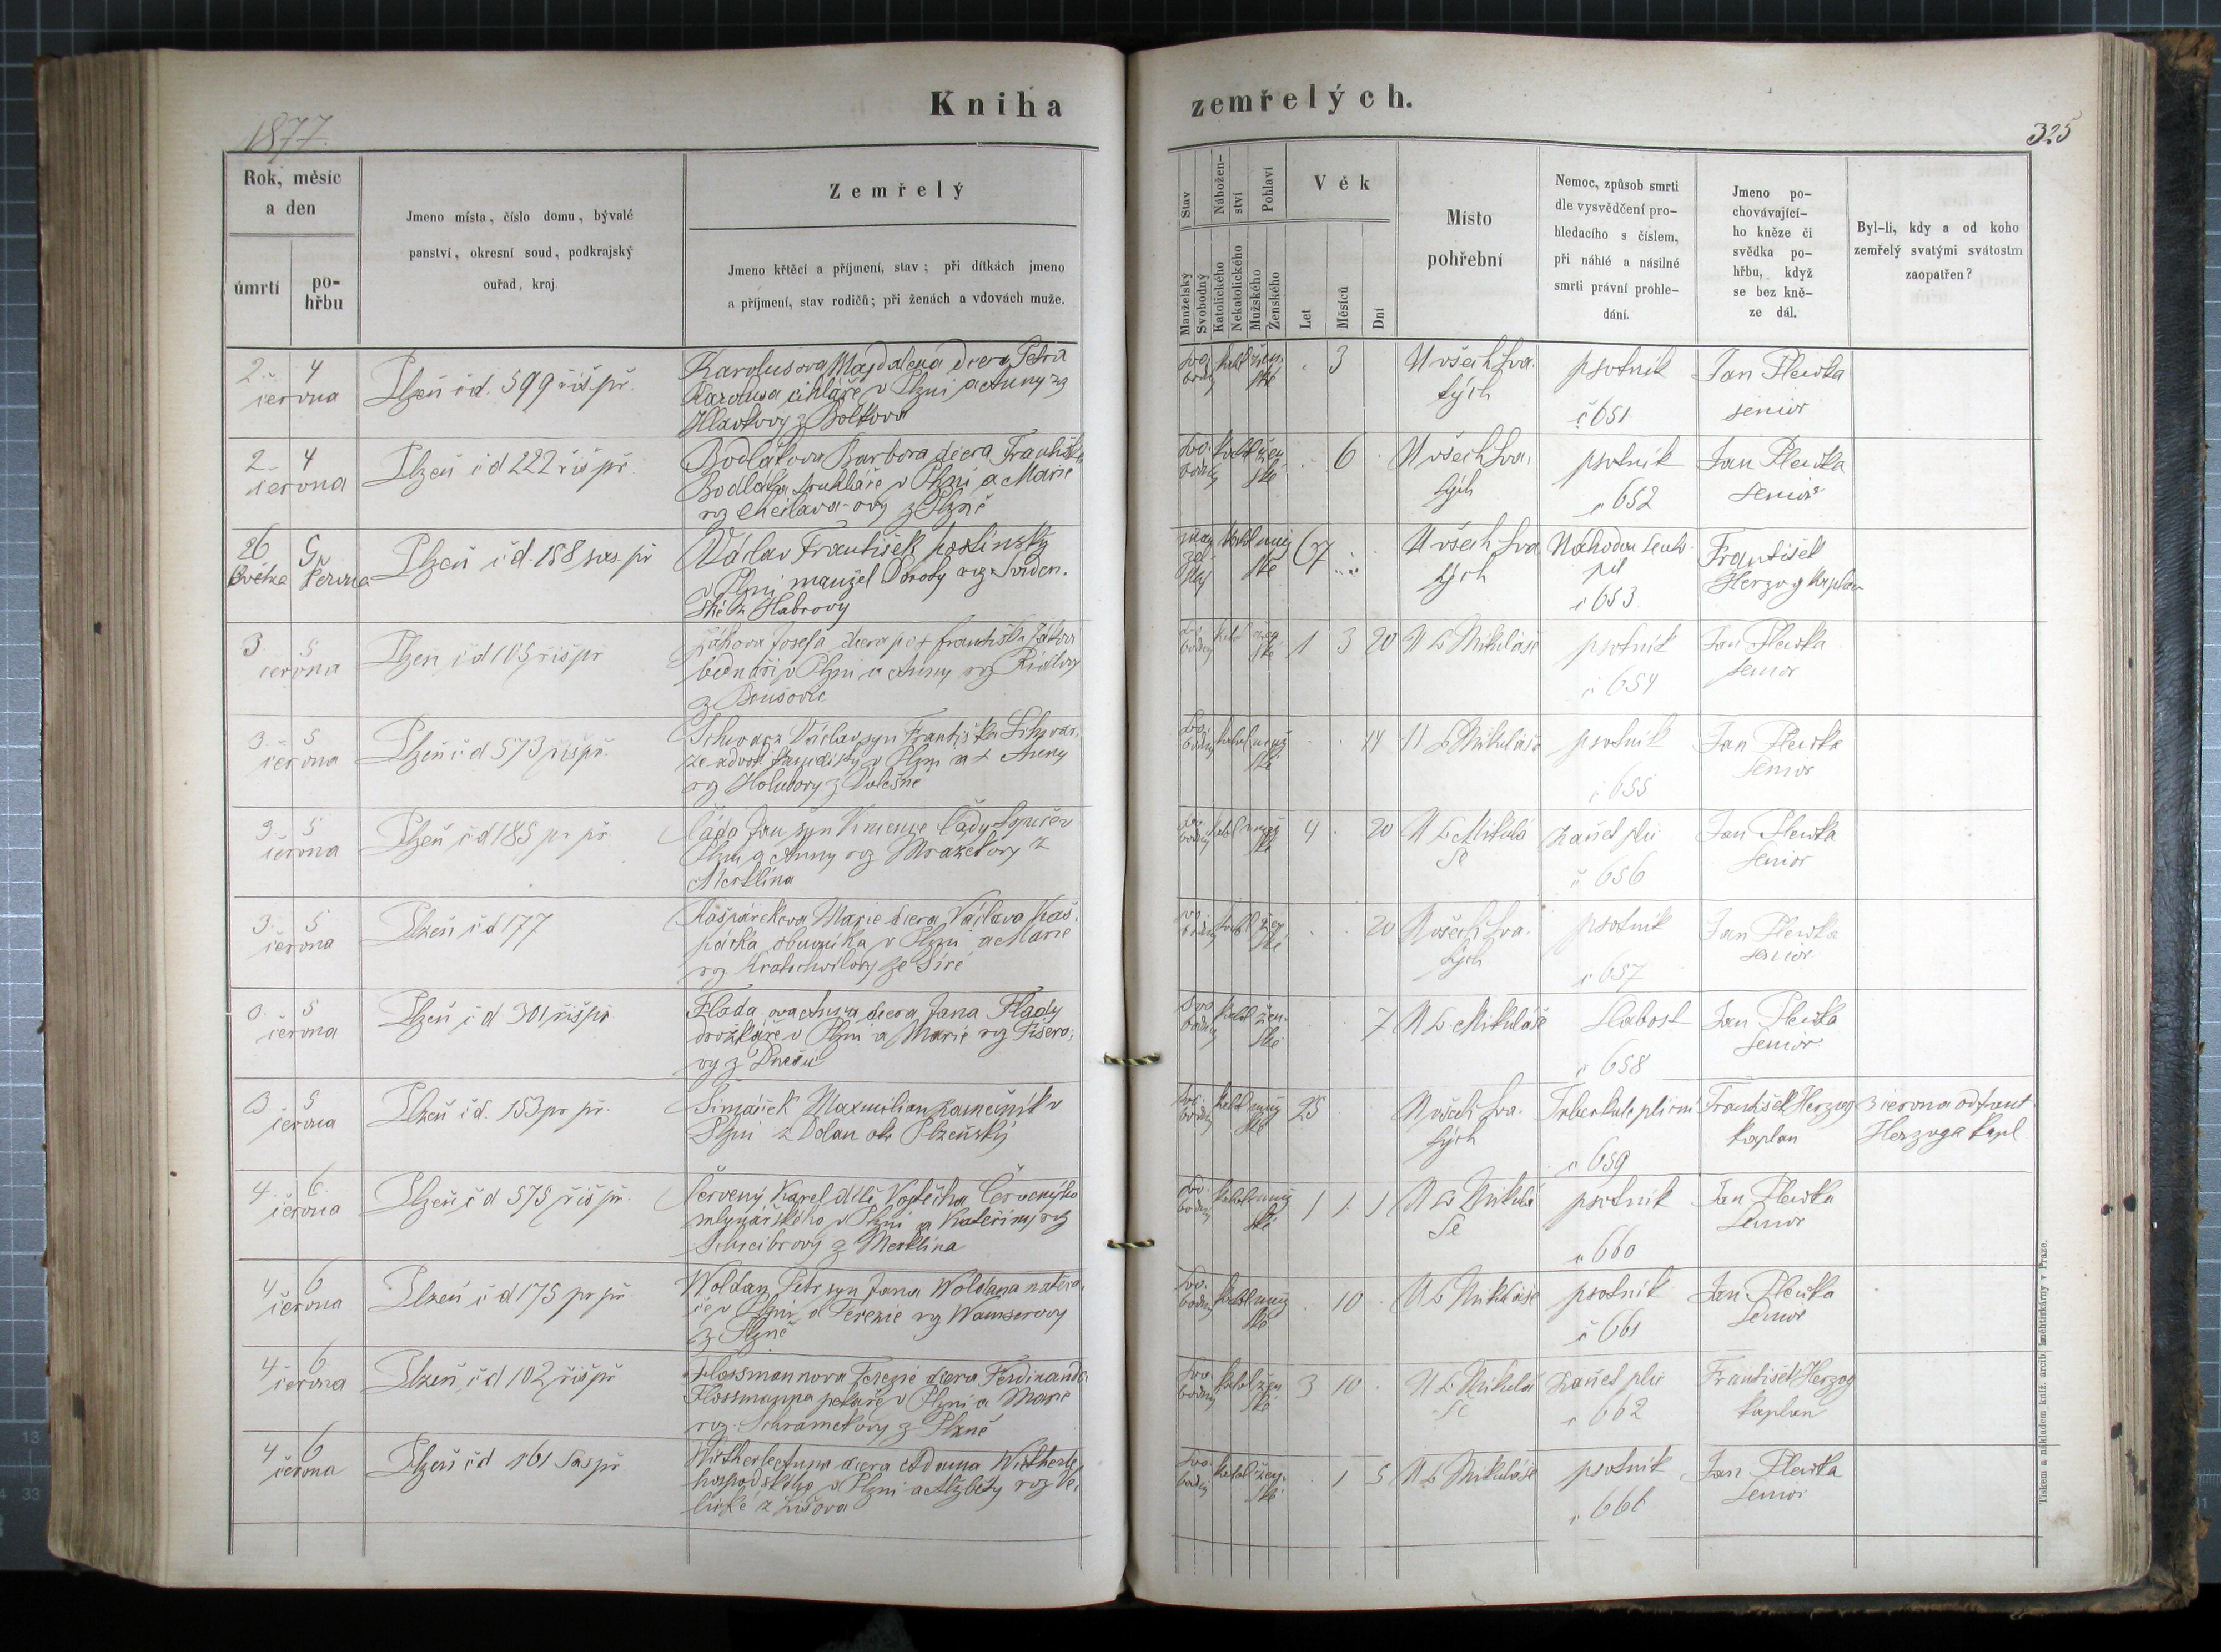 Kniha
zemřelých.
1877.
325
Rok, měsíc
a den
úmrtí
po-
hřbu
Jmeno místa, číslo domu, bývalé
panství, okresní soud, podkrajský
ouřad, kraj.
Zemřelý
Jmeno křtěcí a příjmení, stav; při dítkách jmeno
a příjmení, stav rodičů; při ženách a vdovách muže.
Stav
Manželský
Svobodný
Nábožen-
ství
Katolického
Nekatolického
Pohlaví
Mužského
Ženského
Věk
Let
Měsíců
Dní
Místo
pohřební
Nemoc, způsob smrti
dle vysvědčení pro-
hledacího s číslem,
při náhlé a násilné
smrti právní prohle-
dání.
Jmeno po-
chovávající-
ho kněze či
svědka po-
hřbu, když
se bez kně-
ze dál.
Byl-li, kdy a od koho
zemřelý svatými svátostmi
zaopatřen?
2. 4
června
Plzeň čd. 599 říš př.
Karolusova Majdalena dcera Petra
Karolusa cihláře v Plzni a Anny rz
Hlavkovy z Boltova
svo kat žen 3
bodný ské
U všech Sva.
tých
psotník
č 651
Jan Plewka
senior
2. 4
června
Plzeň čd 222 říš př.
Bodlákova Barbora dcera Františka
Bodláka truhláře v Plzni a Marie
z Plzně
svo. kat žen 6
bodný ské
U všech Sva.
tých
psotník
č 652
Jan Plewka
senior
26 5
Května června
Plzeň čd. 158 sas. př
Václav František hostinský
v Plzni manžel Doroty
z Habrovy
man kat muž 67
žel ské
ský
U všech Sva
tých
Náhodou
č 653
František
Herzog kaplan
3. 5
června
Plzeň čd 105 říš př
Josefa dcera po + Františku
bednáři v Plzni a Anny rz Rídlovy
svo kat žen 1 3 20
bodný ské
U S. Mikuláše
psotník
č 654
Jan Plewka
senior
3. 5
června
Plzeň čd 573 říš př.
Schwarz Václav syn Františka Schwar.
v Plzni a + Anny
rz Holubovy z Dolešné
svo. kat muž 14
bodný ské
U S. Mikuláše
psotník
č 655
Jan Plewka
senior
3. 5
června
Plzeň čd 185 pr př.
Čáda Jan syn Vincence Čády
Plzni a Anny rz Mrazkovy z
Merklína
svo. kat muž 4 20
bodný ské
U S. Mikulá
še
Zánět plic
č 656
Jan Plewka
senior
3. 5
června
Plzeň čd 177
Kašpárkova Marie dcera Václava Kaš.
párka obuvníka v Plzni a Marie
rz Kratochvílovy ze Siré
svo. kat žen 20
bodný ské
U všech Sva.
tých
psotník
č 657
Jan Plewka
senior
3. 5
června
Plzeň čd 301 říš př
Flada ova Anna dcera Jana Flady
drožkáře v Plzni a Marie rz Písero.
vy z Dnešic
svo kat žen. 7
bodný ské
U S. Mikuláše
Slabost
č 658
Jan Plewka
senior
3. 5
června
Plzeň čd. 153 pr př.
Šimáček Maxmilian zámečník v
Plzni z Dolan okr Plzeňský
svo. kat muž 25
bodný ské
U všech Sva.
tých
Tuberkule plicní
č 659
František Herzog
kaplan
3 června od Frant
Herzoga kapl.
4. 6.
června
Plzeň čd 575 říš př.
Červený Karel dítě Vojtěcha Červeného
mlynářského v Plzni a Kateřiny rz
Schreibrovy z Merklína
svo. kat muž 1 1 1
bodný ské
U S. Mikulá
še
psotník
č 660
Jan Plewka
senior
4 6
června
Plzeň čd 175 pr př.
Woldan Petr syn Jana Woldana natěra.
če v Plzni a Terezie rz Wamserovy
z Plzně
svo. kat muž 10
bodný ské
U S. Mikuláše
psotník
č 661
Jan Plewka
senior
4. 6
června
Plzeň čd 102 říš př
Flossmannova Terezie dcera Ferdinanda
Flossmanna pekaře v Plzni a Marie
roz. Schramekovy z Plzně
svo. kat žen 3 10
bodný ské
U S. Mikulá
še
Zánět plic
č 662
František Herzog
kaplan
4 6
června
Plzeň čd 161 Sas př
Anna dcera Adama
hospodského v Plzni a Alžběty roz Ve.
lické z Lišova
svo kat žen. 1 5
bodný ské
U S. Mikuláše
psotník
č 661
Jan Plewka
senior
Tiskem a nákladem kníž. arcib. kněhtiskárny v Praze.